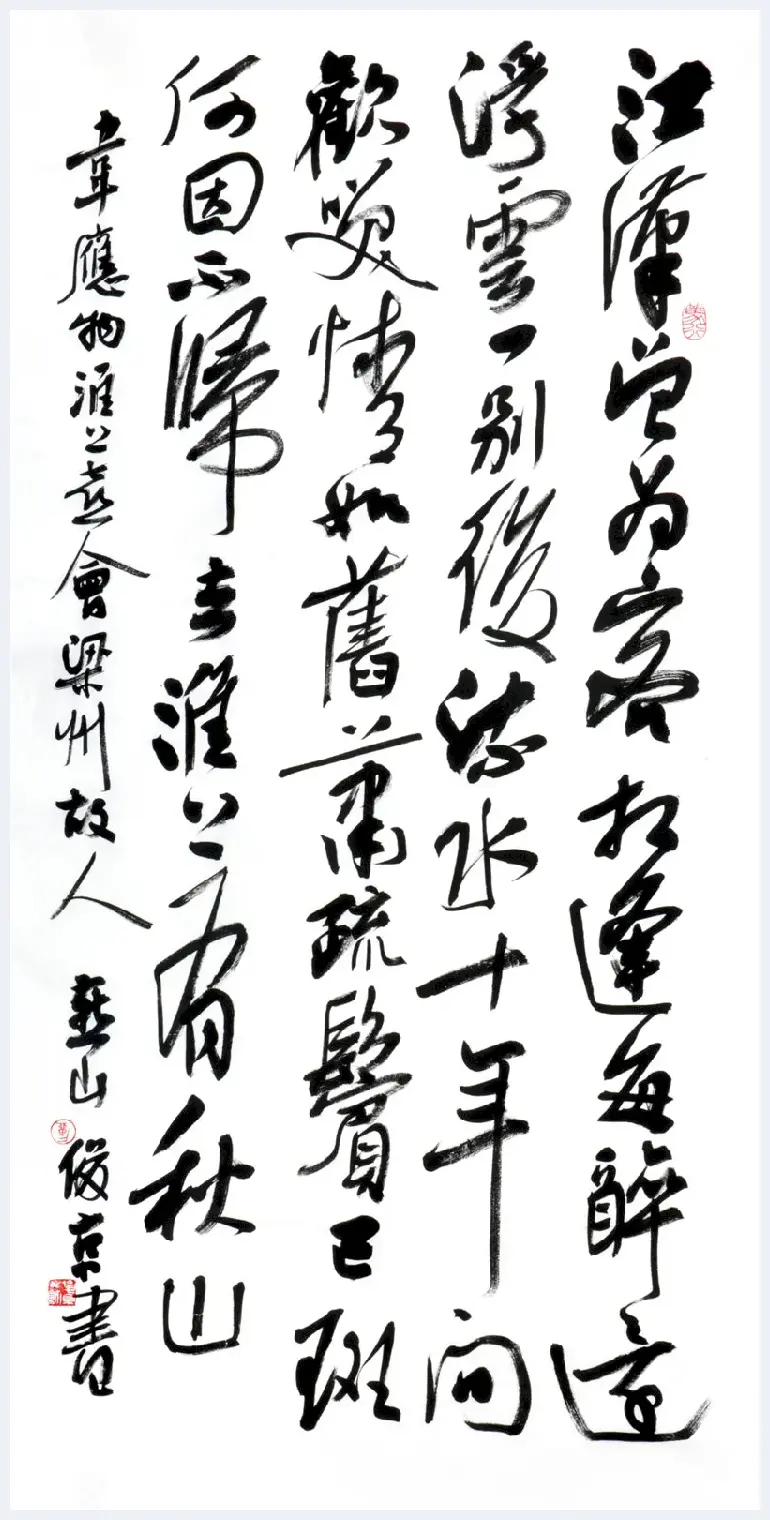 江漢曾为客相逢每醉還
浮雲一别後流水十年间
歡笑情如舊蕭疏鬢已斑
何因不歸去淮上有秋山
韋應物淮上喜會梁州故人 燕山俊京書